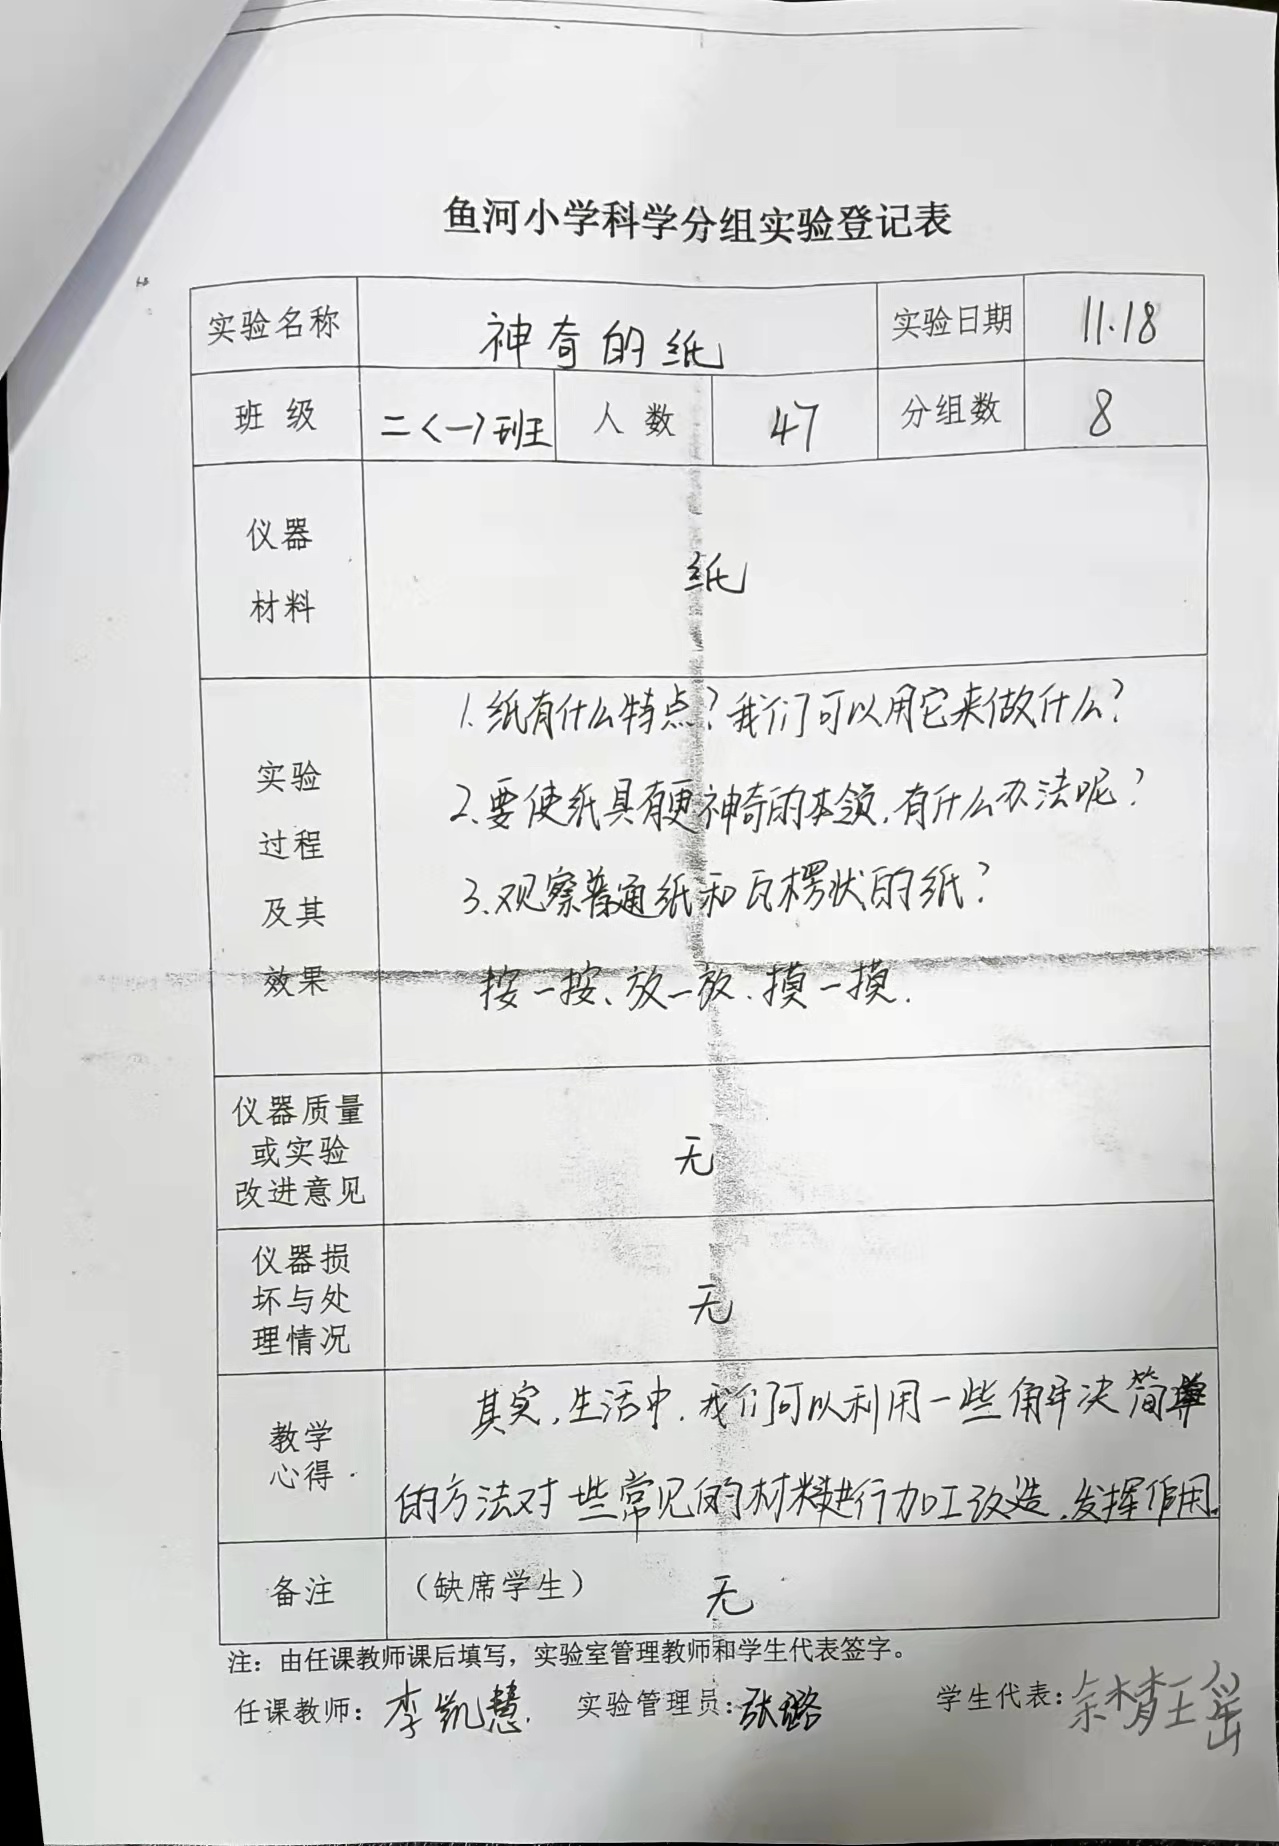 鱼河小学科学分组实验登记表
实验名称 神奇的纸 实验日期 11.18
班 级 二<一>班 人 数 47 分组数 8
仪器
材料
纸
实验
过程
及其
效果
1.纸有什么特点?我们可以用它来做什么?
2.要使纸具有更神奇的本领,有什么办法呢?
3.观察普通纸和瓦楞状的纸?
按一按、放一放、摸一摸.
仪器质量
或实验
改进意见
无
仪器损
坏与处
理情况
无
教学
心得
其实,生活中,我们可以利用一些解决简单
的方法对一些常见的材料进行加工改造,发挥作用.
备注 (缺席学生) 无
注:由任课教师课后填写,实验室管理教师和学生代表签字。
任课教师:李凯慧. 实验管理员:张璐 学生代表:余梦瑶